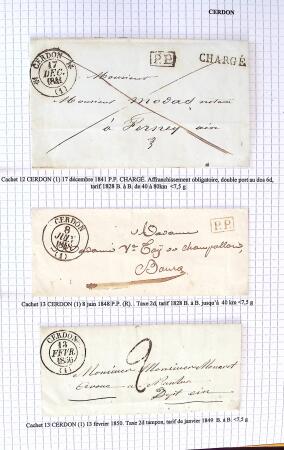 CERDON
CERDON
17
DEC.
1841
(1)
P.P.
CHARGÉ
Monsieur
Monsieur Modas notaire
à Ferney ain
3
Cachet 12 CERDON (1) 17 décembre 1841 P.P. CHARGÉ. Affranchissement obligatoire, double port au dos 6d,
tarif 1828 B. à B. de 40 à 80km <7,5 g
CERDON
8
1848
(1)
P.P.
Madame
Madame Vve
Bourg
Cachet 13 CERDON (1) 8 juin 1848 P.P. (R). . Taxe 2d, tarif 1828 B. à B. jusqu'à 40 km <7,5 g
CERDON
13
FEVR.
1850
(1)
2
Monsieur Monsieur
Nantua
Dept ain
Cachet 13 CERDON (1) 13 février 1850. Taxe 2d tampon, tarif de janvier 1849 B. à B. <7,5 g